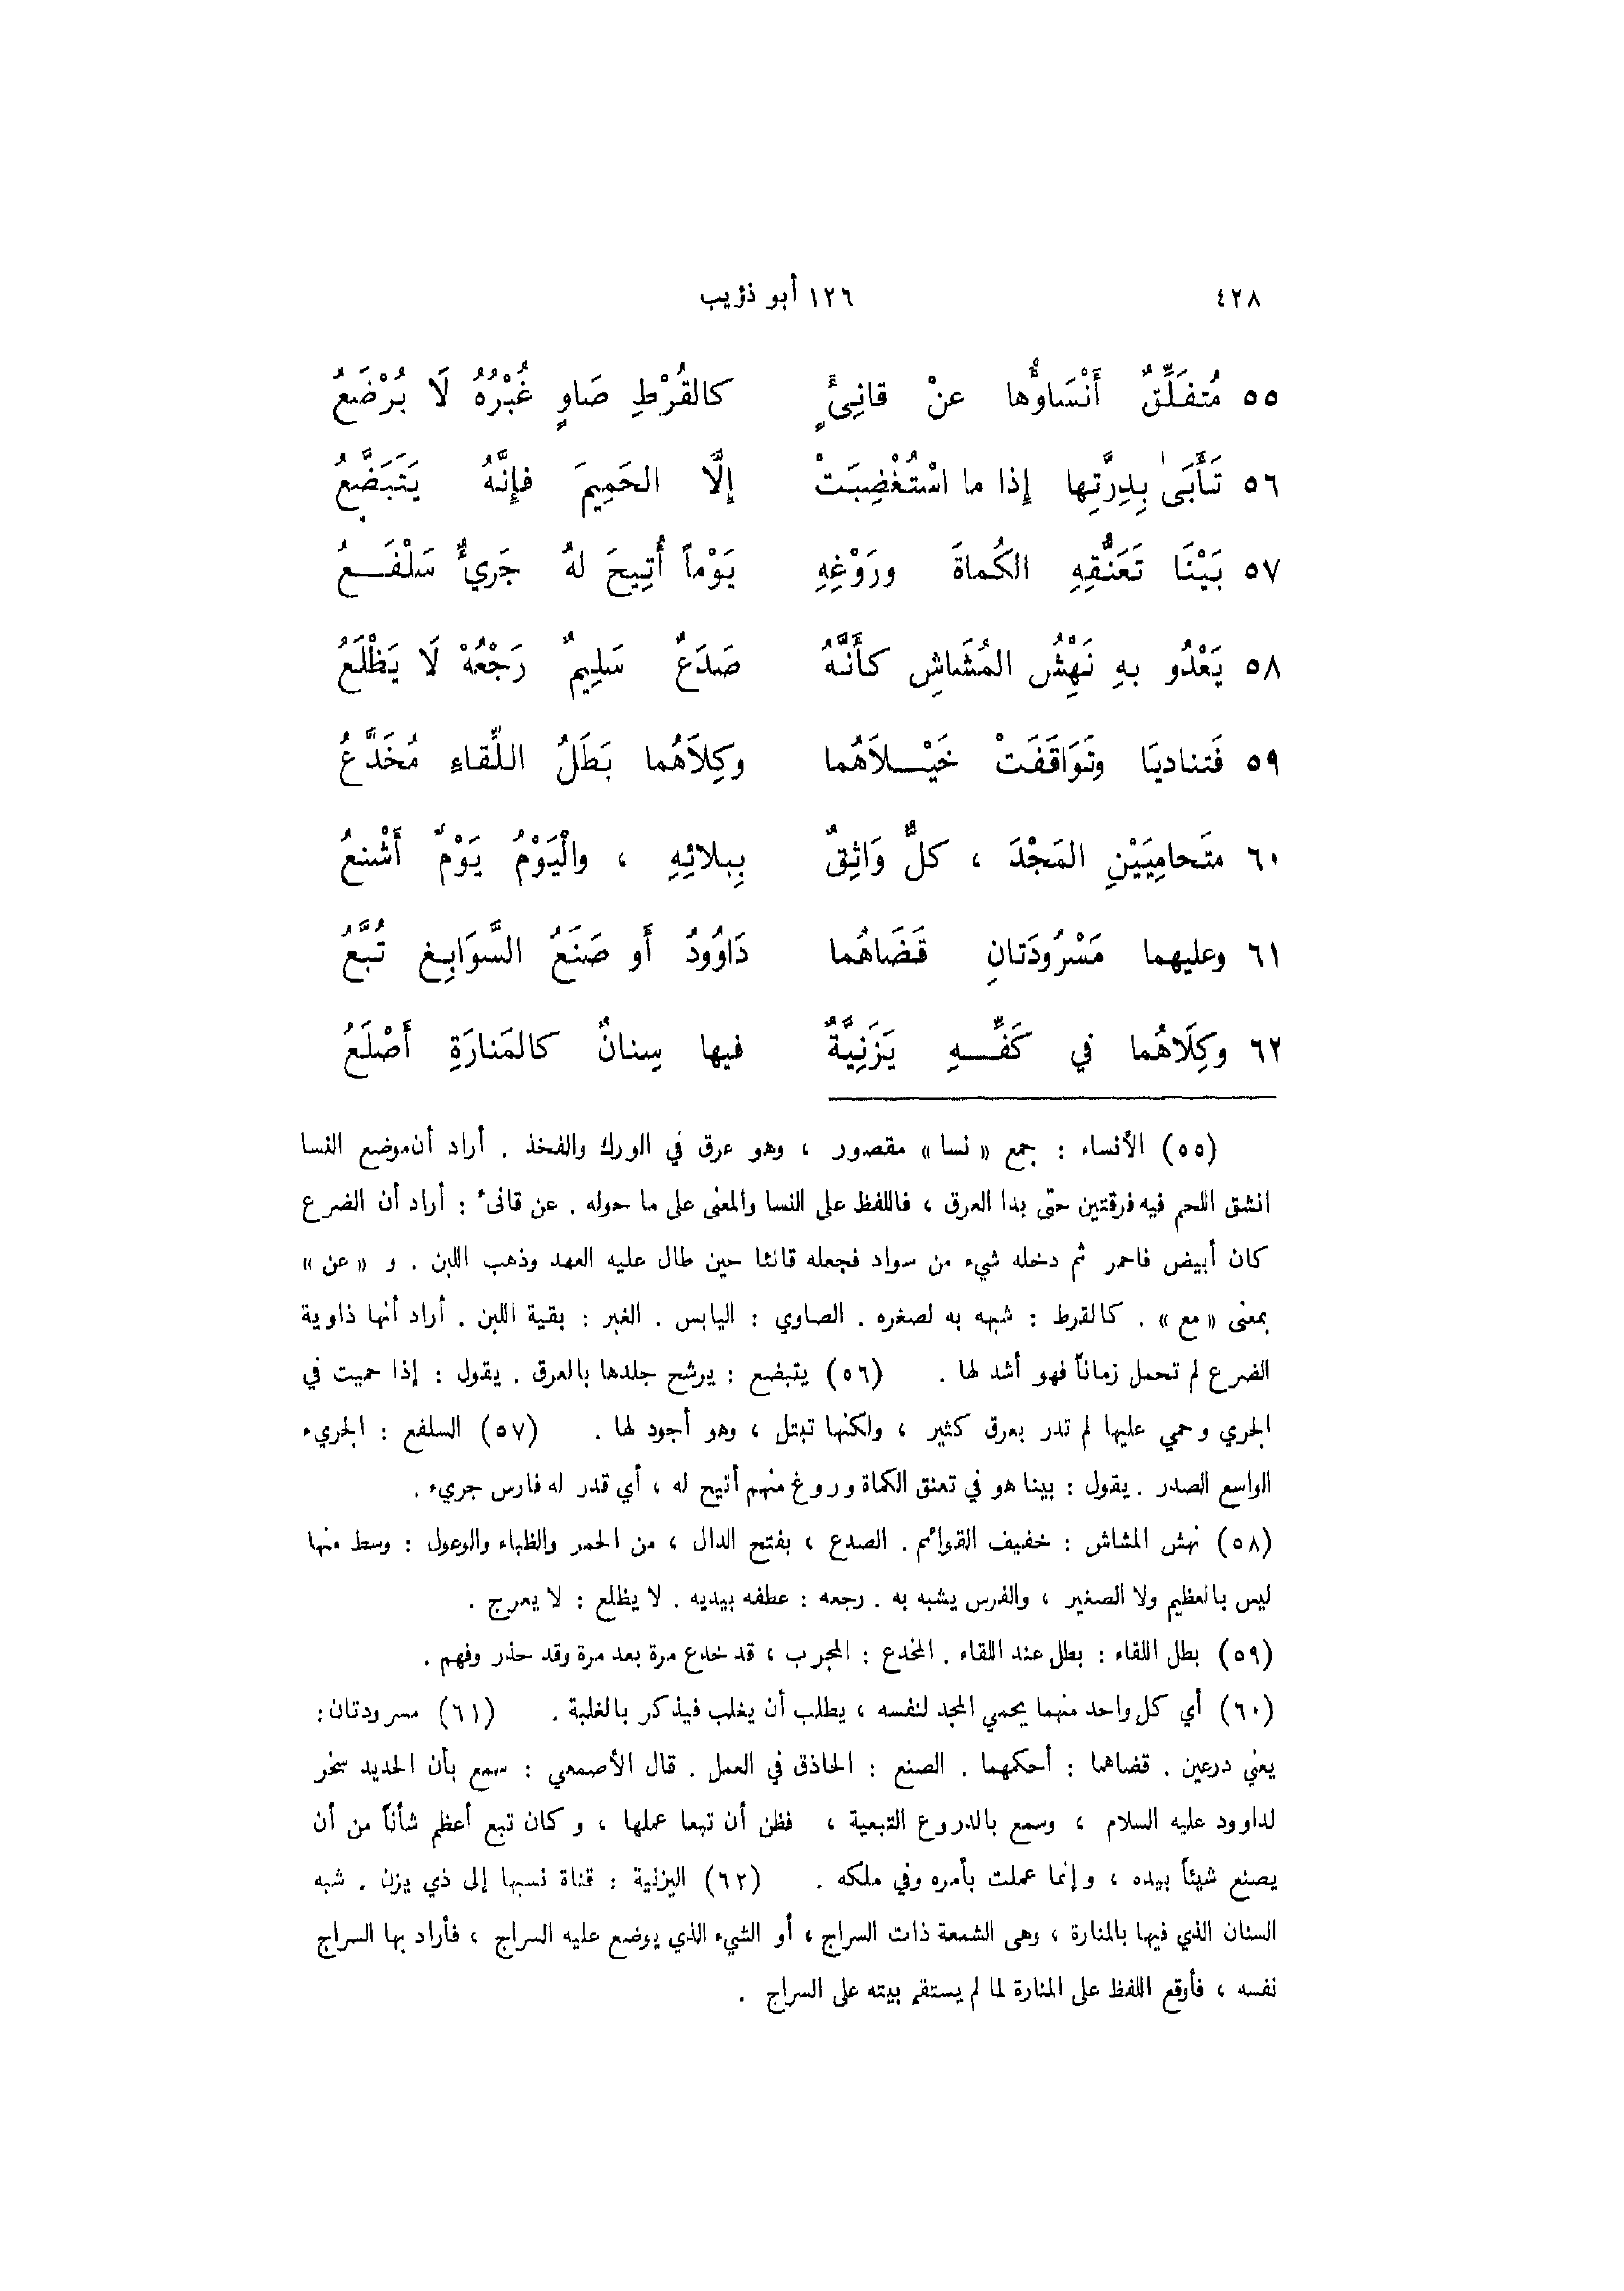 ٤٢٨ ١٢٦ أبو ذؤيب
٥٥ مُتَفَلِّقٌ أَنْسَاوُّها عنْ قانِئٍ كالقُرْطِ صَاوٍ غُبْرُهُ لَا يُرْضَعُ
٥٦ تَأْبَىٰ بِدِرَّتِها إذا ما اسْتُغْضِبَتْ إلَّا الحَمِيمَ فإِنَّهُ يَتَبَضَّعُ
٥٧ بَيْنَا تَعَنُّقِهِ الكُماةَ ورَوْغِهِ يَوْماً أُتِيحَ لهُ جَرِيٌ سَلْفَعُ
٥٨ يَعْدُو بهِ نَهْشُ المُشَاشِ كأَنَّهُ صَدَعٌ سَلِيمٌ رَجْعُهُ لَا يَظْلَعُ
٥٩ فَتناديَا وتَوَاقَفَتْ خَيْلاَهُما وكِلاَهُما بَطَلُ اللِّقاءِ مُخَدَّعُ
٦٠ متَحامِيَيْنِ المَجْدَ ، كلٌّ وَاثِقٌ بِبلائِهِ ، والْيَوْمُ يَوْمٌ أَشْنعُ
٦١ وعليهما مَسْرُودَتانِ قَضَاهُما دَاوُودُ أو صَنَعُ السَّوَابِغِ تُبَّعُ
٦٢ وكِلَاهُما في كَفِّهِ يَزَنِيَّةٌ فيها سِنانٌ كالمَنارَةِ أَصْلَعُ
(٥٥) الأنساء : جمع «نسا» مقصور ، وهو عرق في الورك والفخذ . أراد أن موضع النسا
انشق اللحم فيه فرقتين حتى بدا العرق ، فاللفظ على النسا والمعنى على ما حوله . عن قانئ : أراد أن الضرع
كان أبيض فاحمر ثم دخله شيء من سواد فجعله قانئا حين طال عليه العهد وذهب اللبن . و «عن»
بمعنى «مع» . كالقرط : شبهه به لصغره . الصاوي : اليابس . الغبر : بقية اللبن . أراد أنها ذاوية
الضرع لم تحمل زماناً فهو أشد لها . (٥٦) يتبضع : يرشح جلدها بالعرق . يقول : إذا حميت في
الجري وحمي عليها لم تدر بعرق كثير ، ولكنها تبتل ، وهو أجود لها . (٥٧) السلفع : الجريء
الواسع الصدر . يقول : بينا هو في تعنق الكماة وروغ منهم أتيح له ، أي قدر له فارس جريء .
(٥٨) نهش المشاش : خفيف القوائم . الصدع ، بفتح الدال ، من الحمر والظباء والوعول : وسط منها
ليس بالعظيم ولا الصغير ، والفرس يشبه به . رجعه : عطفه بيديه . لا يظلع : لا يعرج .
(٥٩) بطل اللقاء : بطل عند اللقاء . المخدع : المجرب ، قد خدع مرة بعد مرة وقد حذر وفهم .
(٦٠) أي كل واحد منهما يحمي المجد لنفسه ، يطلب أن يغلب فيذكر بالغلبة . (٦١) مسرودتان :
يعني درعين . قضاهما : أحكمهما . الصنع : الحاذق في العمل . قال الأصمعي : سمع بأن الحديد سخر
لداوود عليه السلام ، وسمع بالدروع التبعية ، فظن أن تبعا عملها ، وكان تبع أعظم شأناً من أن
يصنع شيئاً بيده ، وإنما عملت بأمره وفي ملكه . (٦٢) اليزنية : قناة نسبها إلى ذي يزن . شبه
السنان الذي فيها بالمنارة ، وهى الشمعة ذات السراج ، أو الشيء الذي يوضع عليه السراج ، فأراد بها السراج
نفسه ، فأوقع اللفظ على المنارة لما لم يستقم بيته على السراج .